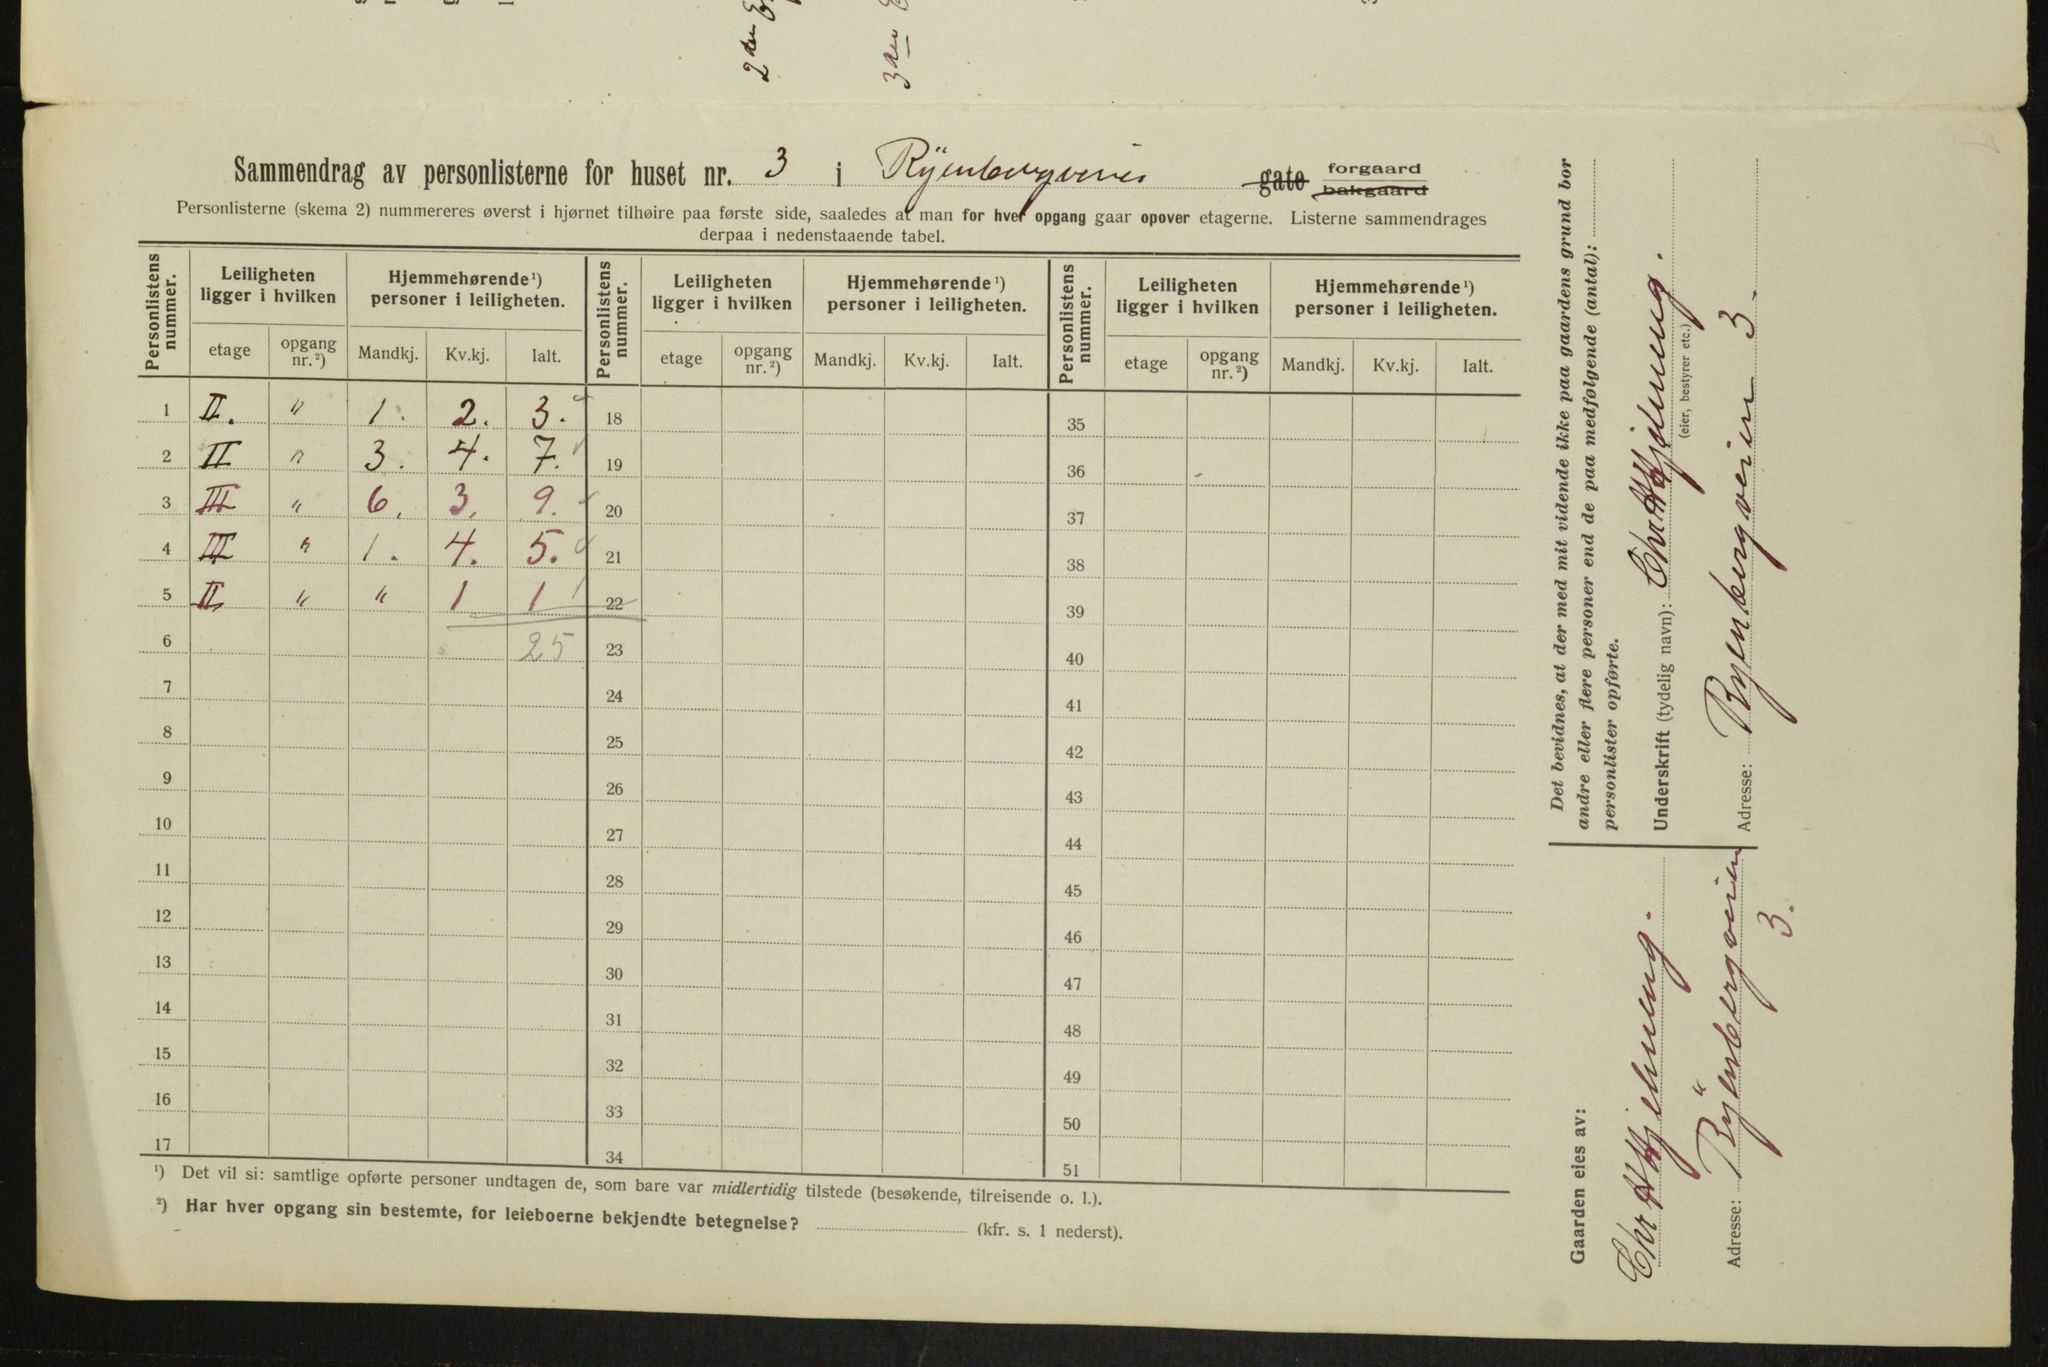 2den
3den
Sammendrag av personlisterne for huset nr. 3 i Ryenbergveien gate forgaard bakgaard
Personlisterne (skema 2) nummereres øverst i hjørnet tilhøire paa første side, saaledes at man for hver opgang gaar opover etagerne. Listerne sammendrages
derpaa i nedenstaaende tabel.
Personlistens nummer. Leiligheten ligger i hvilken Hjemmehørende ¹) personer i leiligheten. Personlistens nummer. Leiligheten ligger i hvilken Hjemmehørende ¹) personer i leiligheten. Personlistens nummer. Leiligheten ligger i hvilken Hjemmehørende ¹) personer i leiligheten.
etage opgang nr. ²) Mandkj. Kv.kj. Ialt. etage opgang nr. ²) Mandkj. Kv.kj. Ialt. etage opgang nr. ²) Mandkj. Kv.kj. Ialt.
1 II. " 1. 2. 3. 18 35
2 II " 3. 4. 7. 19 36
3 III " 6. 3. 9. 20 37
4 III " 1. 4. 5. 21 38
5 II " " 1 1 22 39
6 25 23 40
7 24 41
8 25 42
9 26 43
10 27 44
11 28 45
12 29 46
13 30 47
14 31 48
15 32 49
16 33 50
17 34 51
¹) Det vil si: samtlige opførte personer undtagen de, som bare var midlertidig tilstede (besøkende, tilreisende o. l.).
²) Har hver opgang sin bestemte, for leieboerne bekjendte betegnelse? (kfr. s. 1 nederst).
Det bevidnes, at der med mit vidende ikke paa gaardens grund bor
andre eller flere personer end de paa medfølgende (antal):
personlister opførte.
Underskrift (tydelig navn): Chr Hjelmung.
(eier, bestyrer etc.)
Adresse: Ryenbergveien 3.
Gaarden eies av:
Chr Hjelmung.
Adresse: Ryenbergveien
3.